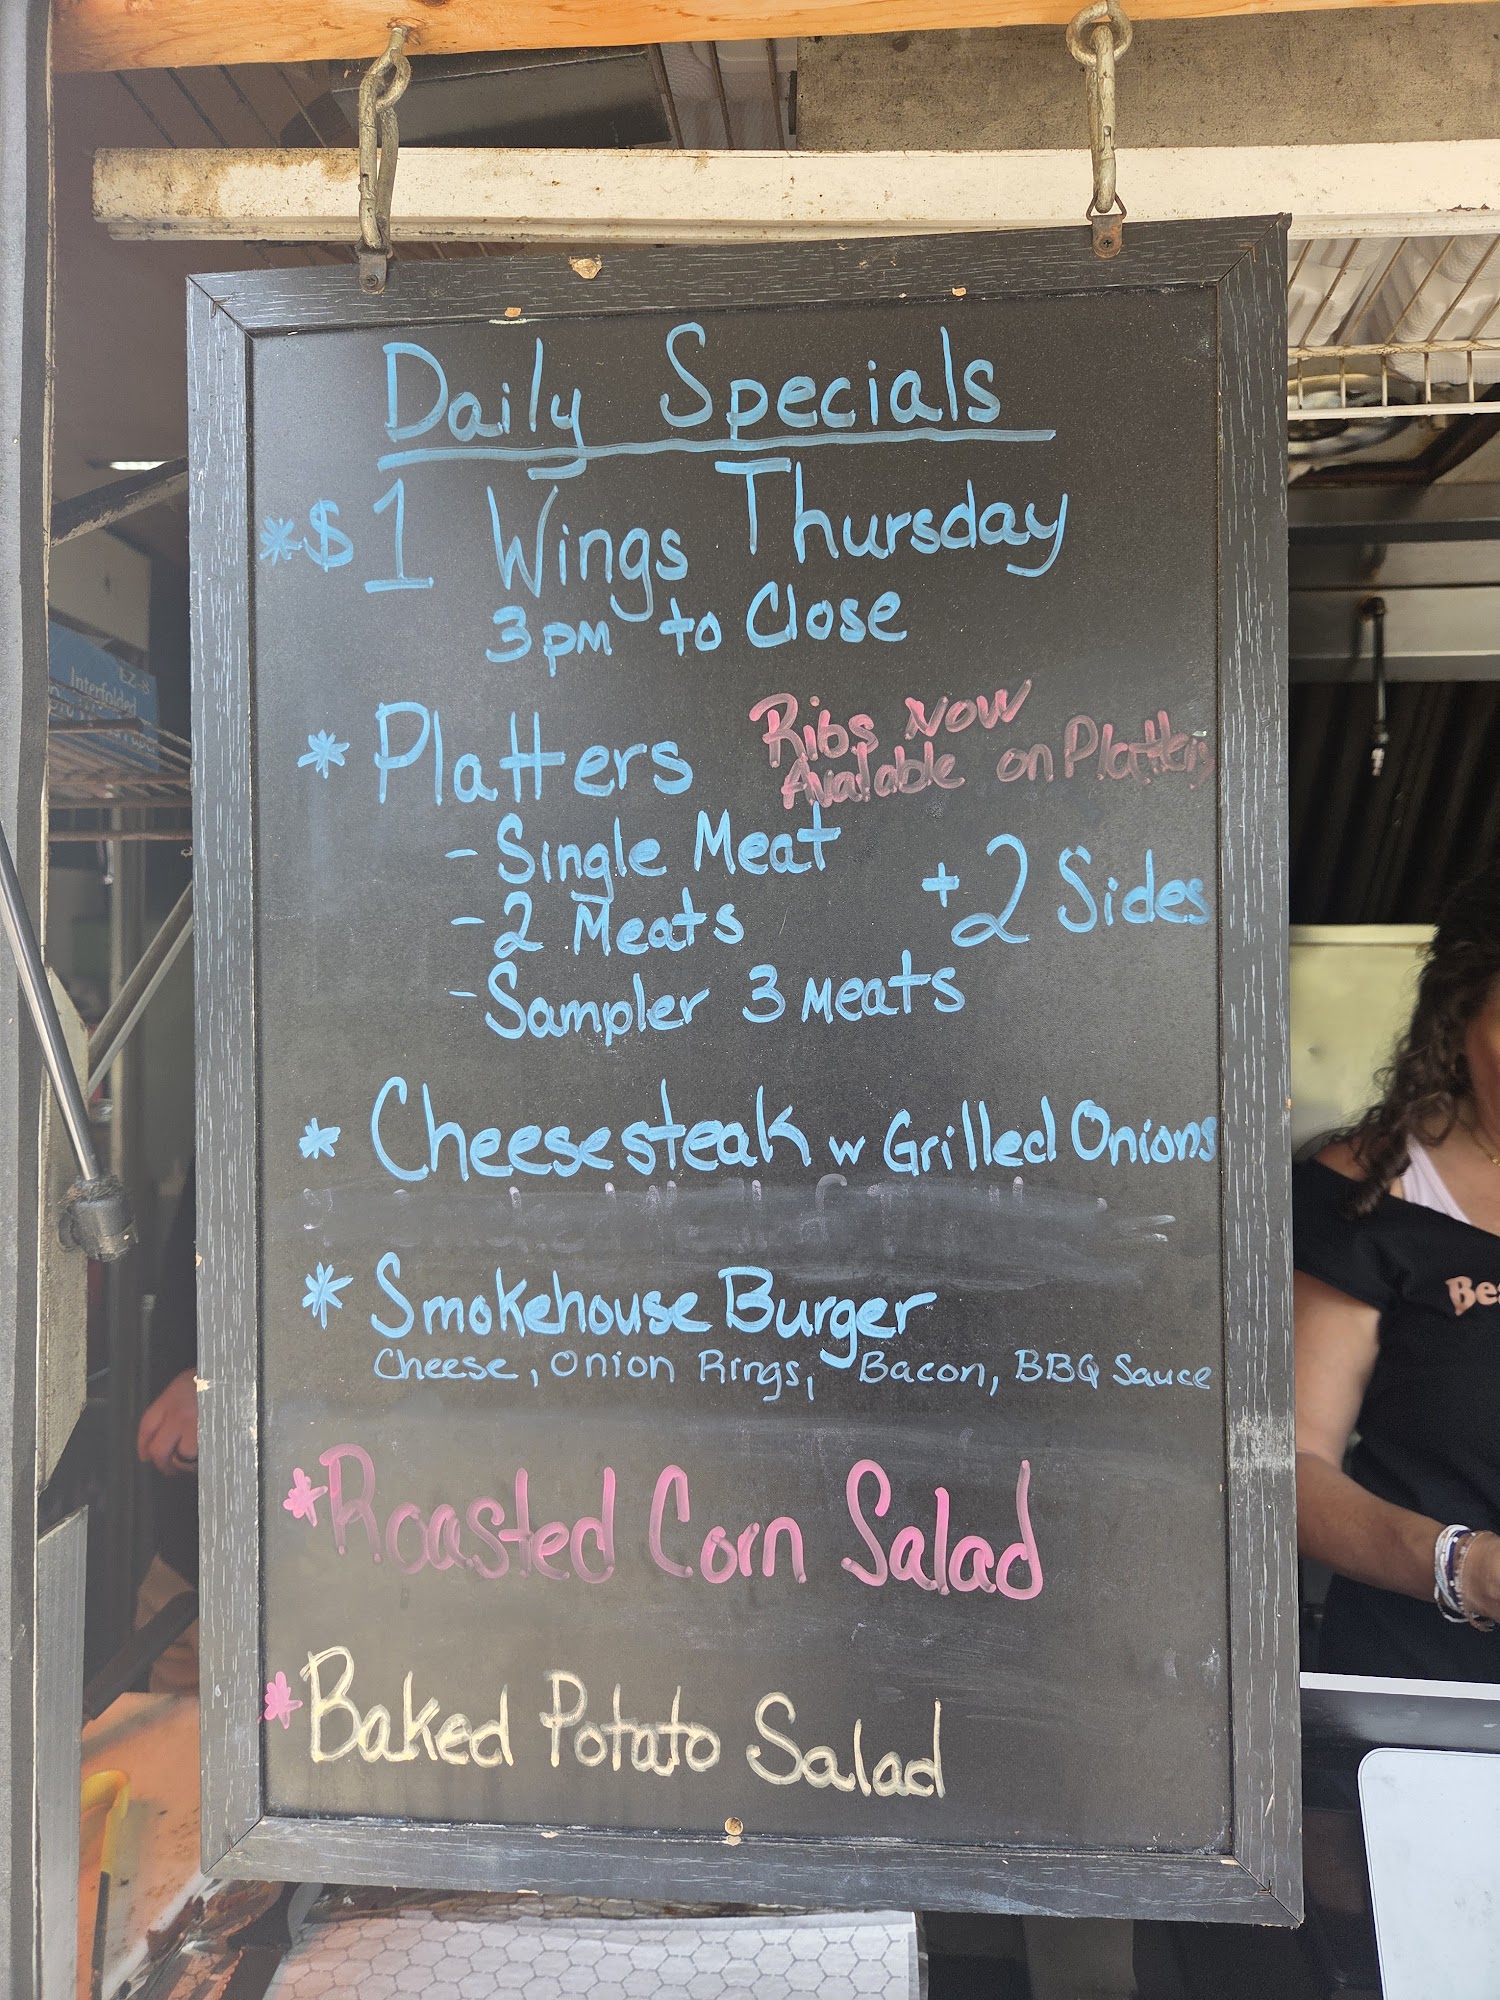 Daily Specials
* $1 Wings Thursday
3pm to Close
* Platters
Ribs Now
Available on Platters
- Single Meat
- 2 Meats
+ 2 Sides
- Sampler 3 Meats
* Cheesesteak w Grilled Onions
* Smokehouse Burger
Cheese, Onion Rings, Bacon, BBQ Sauce
* Roasted Corn Salad
* Baked Potato Salad
EZ-8
Interfolded
Be